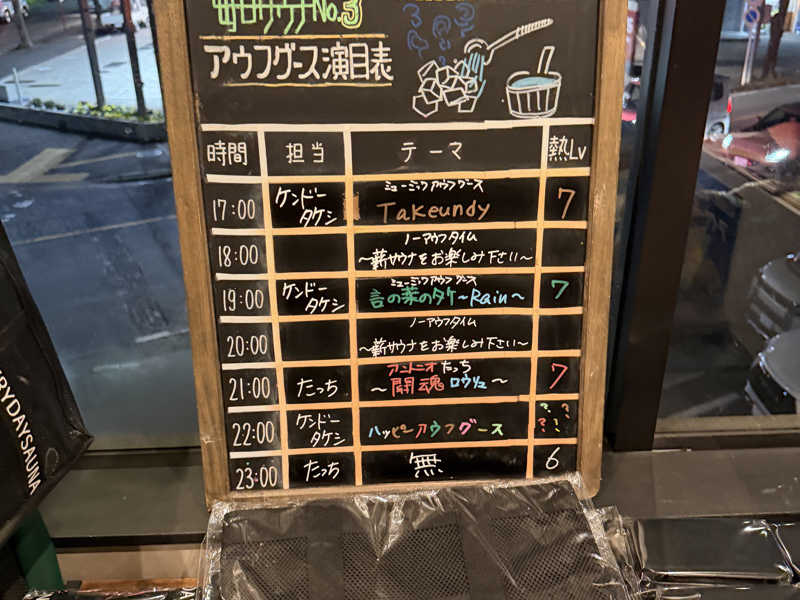 毎日サウナNo.3
アウフグース演目表
時間 担当 テーマ 熱Lv
17:00 ケンドータケシ ミュージックアウフグース Takeundy 7
18:00 ノーアウフタイム ～薪サウナをお楽しみ下さい～
19:00 ケンドータケシ ミュージックアウフグース 言の葉のタケ～Rain～ 7
20:00 ノーアウフタイム ～薪サウナをお楽しみ下さい～
21:00 たっち アントニオたっち ～闘魂ロウリュ～ 7
22:00 ケンドータケシ ハッピーアウフグース ????
23:00 たっち 無 6
RYDAYSAUNA